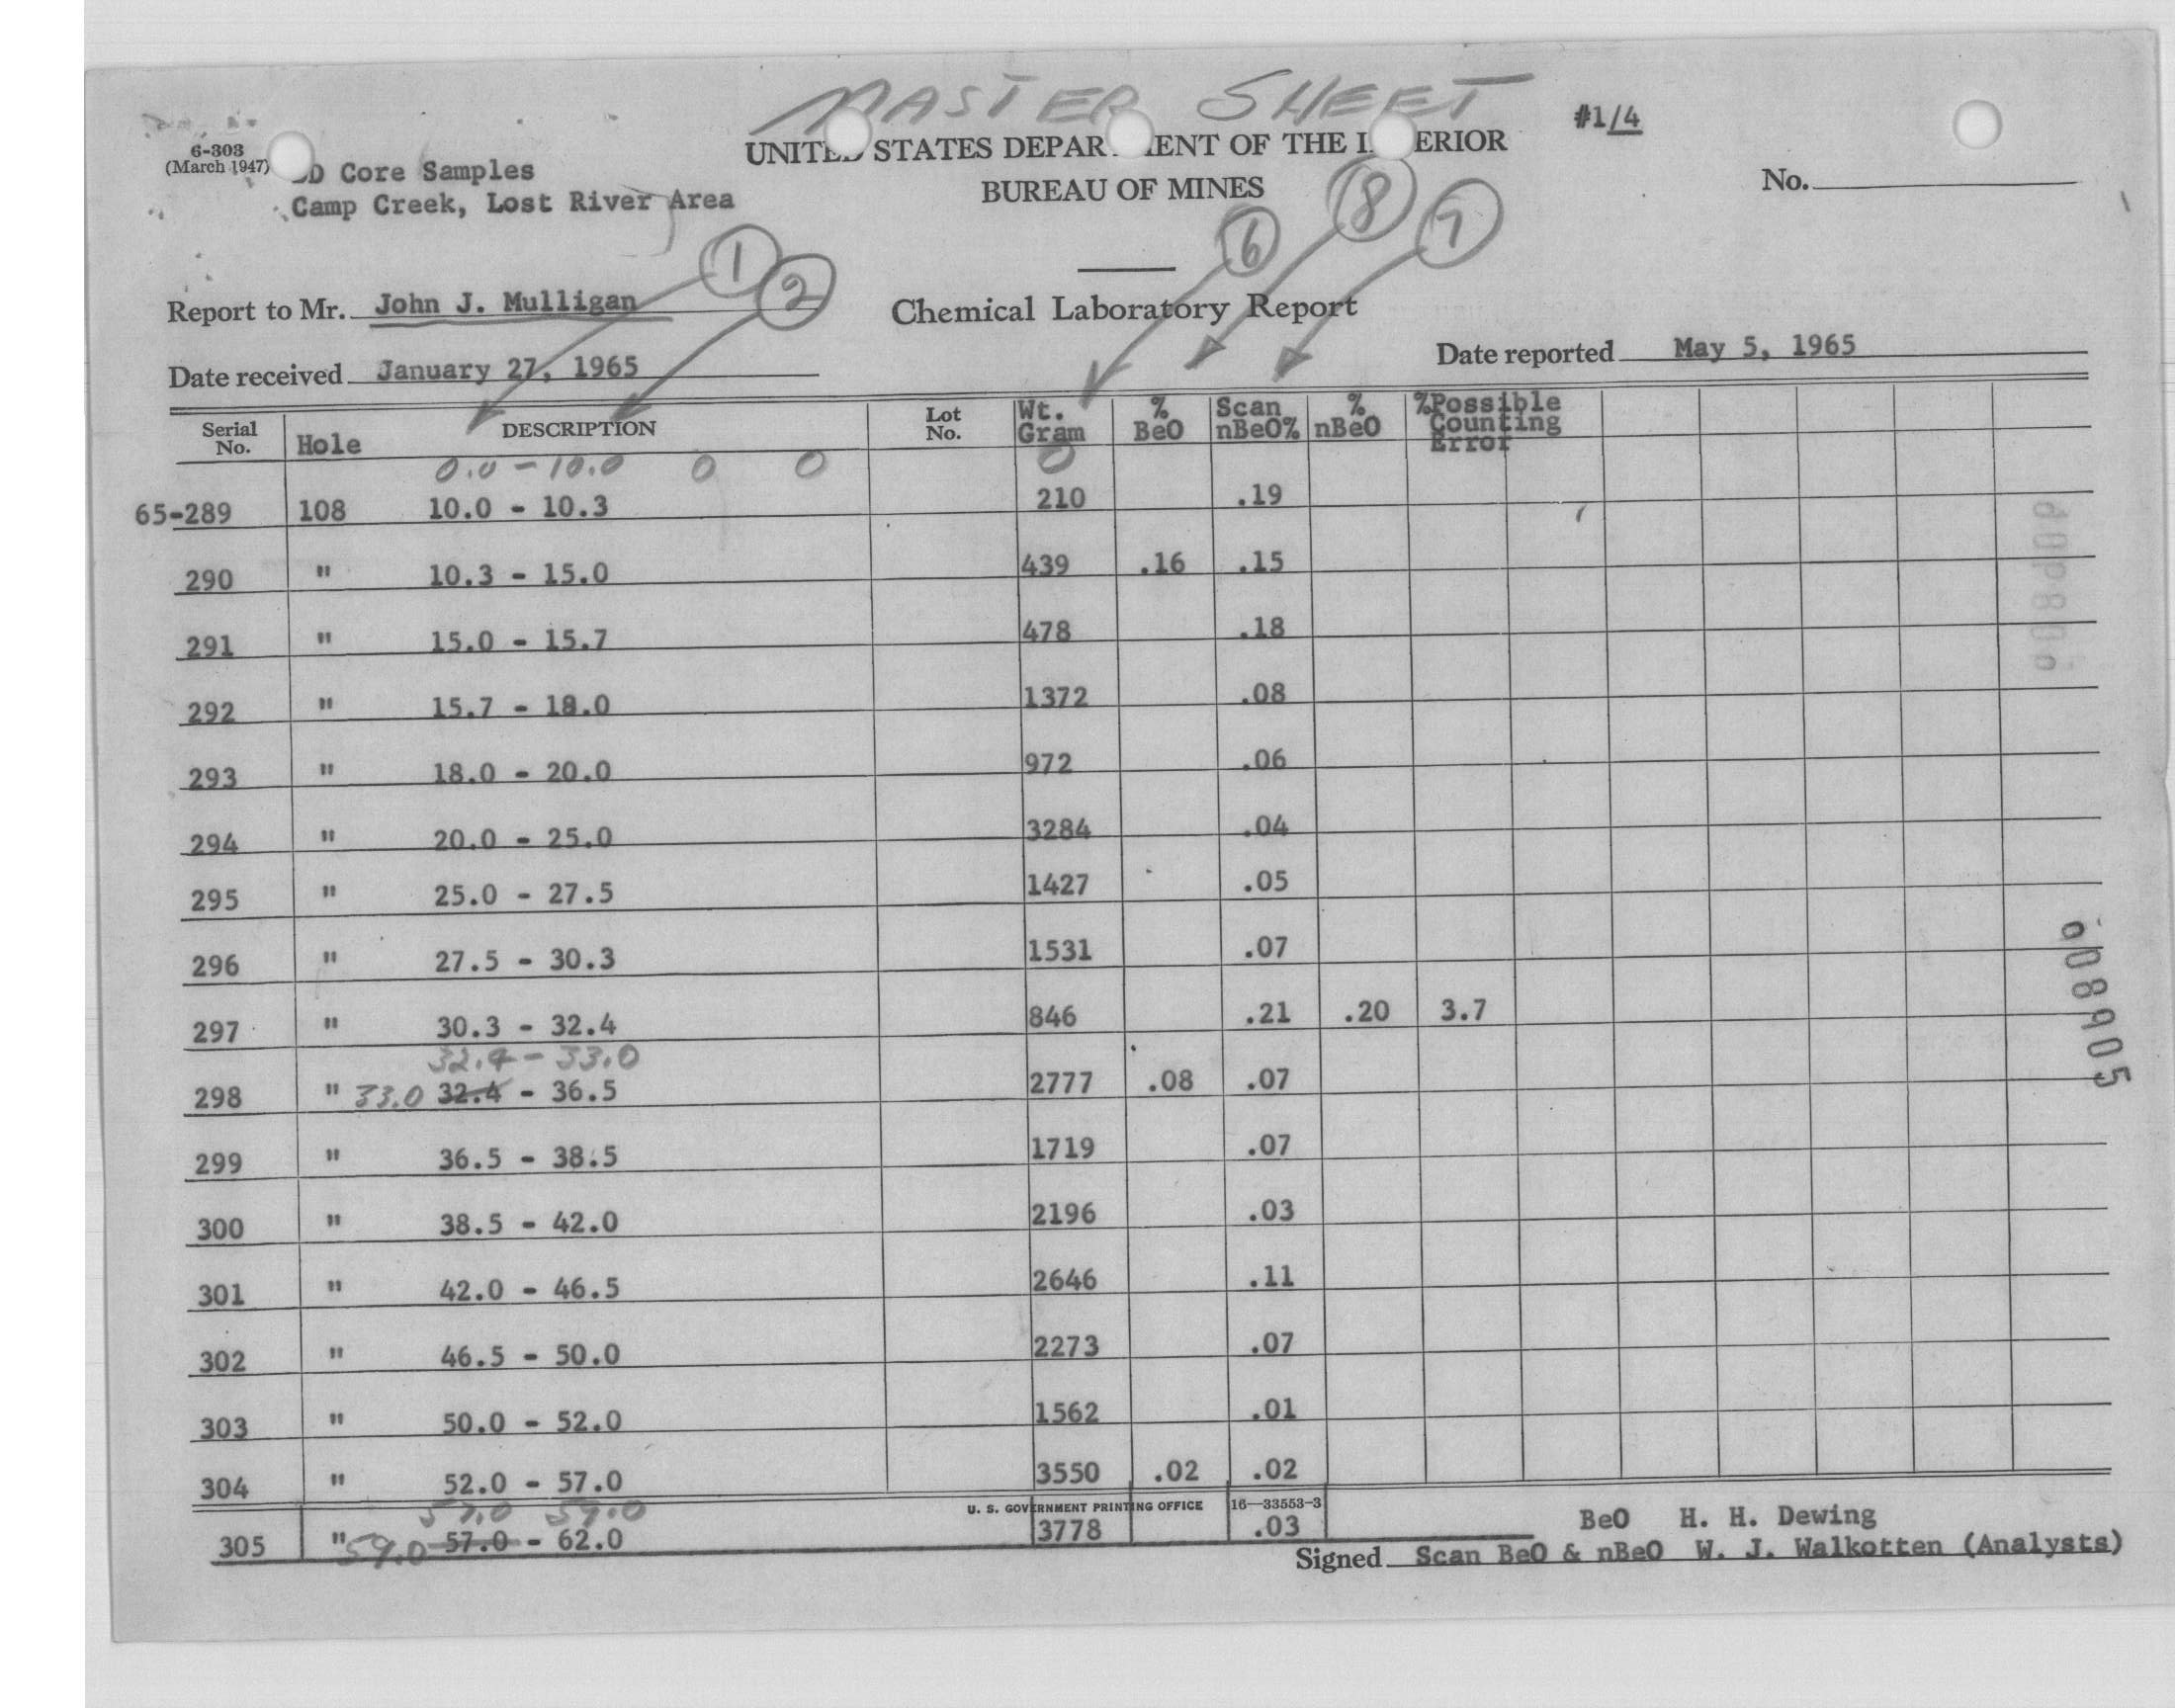 MASTER SHEET
#1/4
6-303
(March 1947)
UNITED STATES DEPARTMENT OF THE INTERIOR
BUREAU OF MINES
No.
DD Core Samples
Camp Creek, Lost River Area
1 2 6 8 7
Report to Mr. John J. Mulligan
Chemical Laboratory Report
Date received January 27, 1965
Date reported May 5, 1965
Serial No. Hole DESCRIPTION Lot No. Wt. Gram % BeO Scan nBeO% % nBeO %Possible Counting Error
0.0 - 10.0 0 0 0
65-289 108 10.0 - 10.3 210 .19
290 " 10.3 - 15.0 439 .16 .15
291 " 15.0 - 15.7 478 .18
292 " 15.7 - 18.0 1372 .08
293 " 18.0 - 20.0 972 .06
294 " 20.0 - 25.0 3284 .04
295 " 25.0 - 27.5 1427 .05
296 " 27.5 - 30.3 1531 .07
297 " 30.3 - 32.4 846 .21 .20 3.7
32.4 - 33.0
298 " 33.0 32.4 - 36.5 2777 .08 .07
299 " 36.5 - 38.5 1719 .07
300 " 38.5 - 42.0 2196 .03
301 " 42.0 - 46.5 2646 .11
302 " 46.5 - 50.0 2273 .07
303 " 50.0 - 52.0 1562 .01
304 " 52.0 - 57.0 3550 .02 .02
57.0 59.0
U. S. GOVERNMENT PRINTING OFFICE 16—33553-3
305 " 59.0 57.0 - 62.0 3778 .03
BeO H. H. Dewing
Signed Scan BeO & nBeO W. J. Walkotten (Analysts)